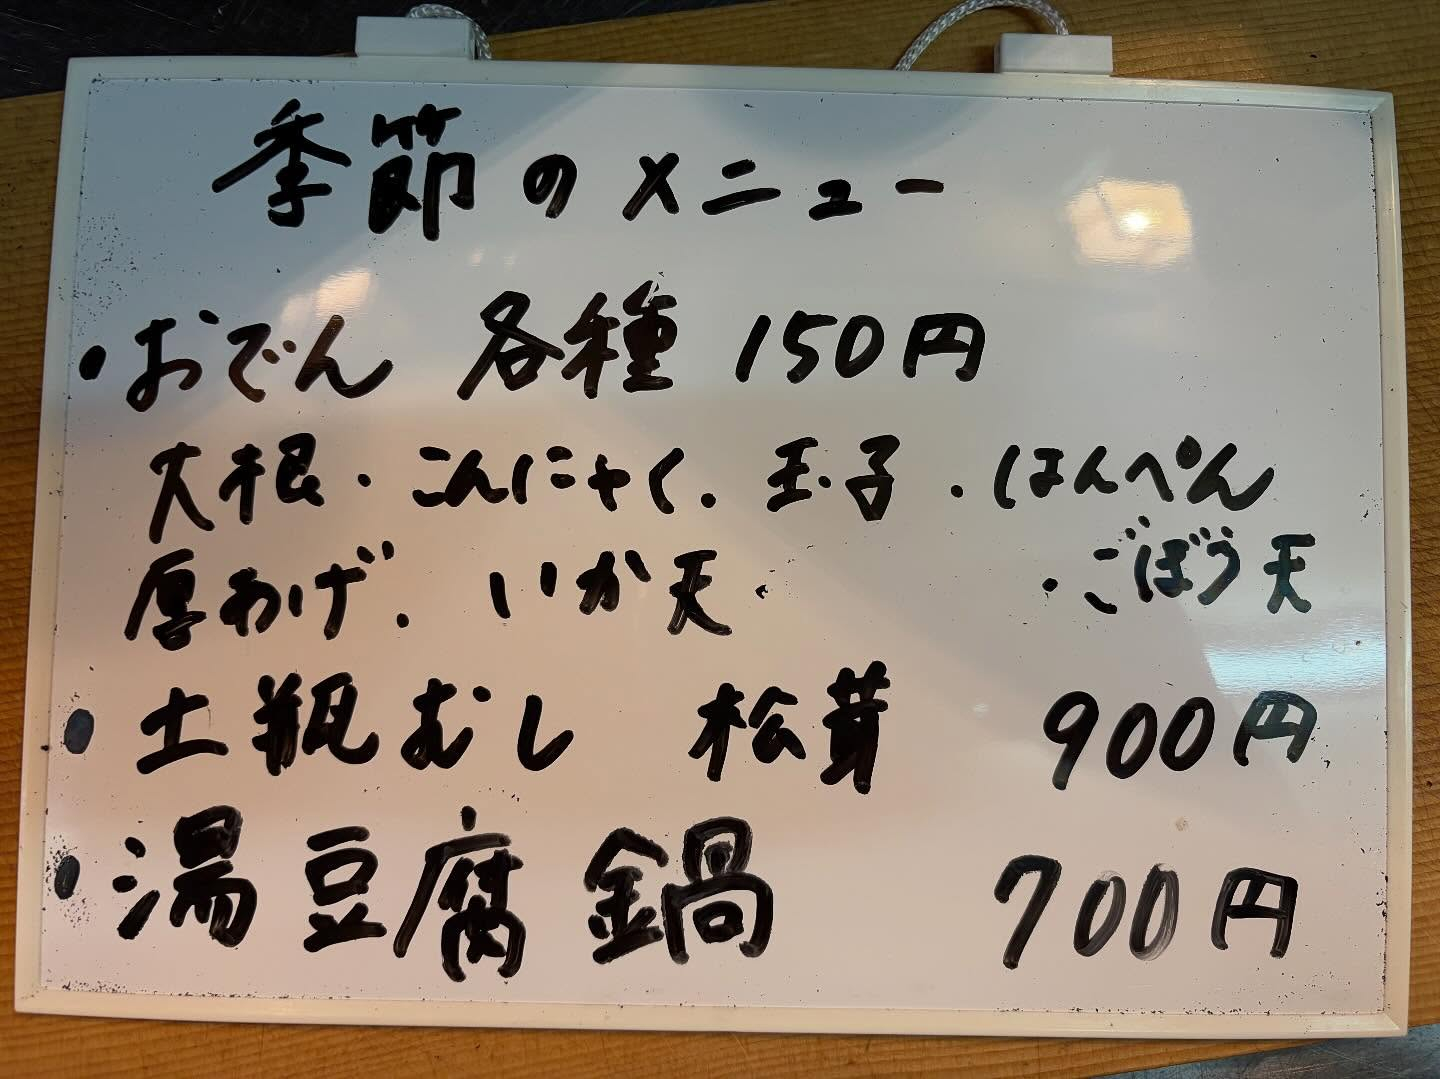 季節のメニュー
・おでん 各種 150円
大根・こんにゃく・玉子・はんぺん
厚あげ・いか天・ ・ごぼう天
・土瓶むし 松茸 900円
・湯豆腐鍋 700円